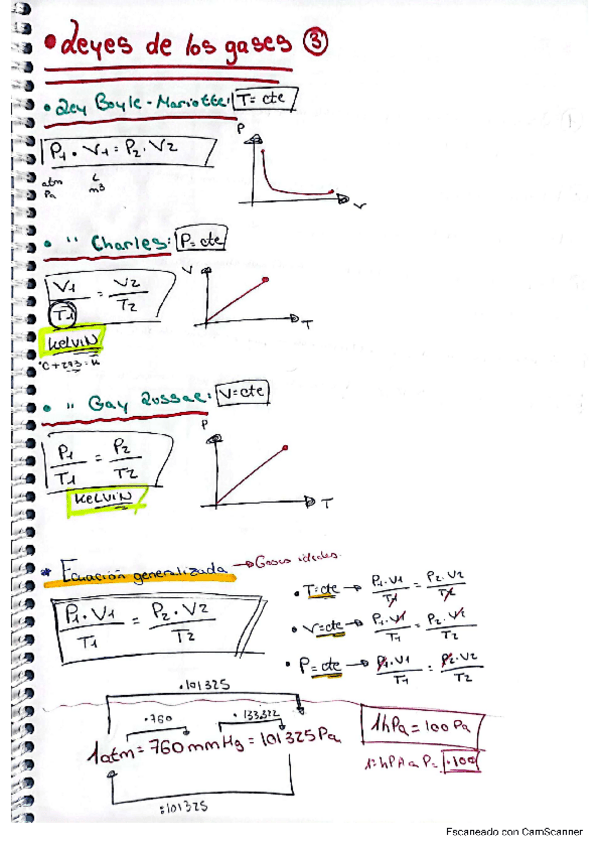 • Leyes de los gases ③
• Ley Boyle - Mariotte: T = cte
P1 • V1 = P2 • V2
atm L
Pa m3
P
V
• " Charles: P = cte
V1/T1 = V2/T2
KELVIN
°C + 273 = K
V
T
• " Gay Lussac: V = cte
P1/T1 = P2/T2
KELVIN
P
T
* Ecuación generalizada → Gases ideales.
P1 • V1/T1 = P2 • V2/T2
• T = cte → P1 • V1/T1 = P2 • V2/T2
• V = cte → P1 • V1/T1 = P2 • V2/T2
• P = cte → P1 • V1/T1 = P2 • V2/T2
·101325
·760 ·133,322
1atm = 760 mmHg = 101325 Pa
:101325
1hPa = 100 Pa
·100
Escaneado con CamScanner